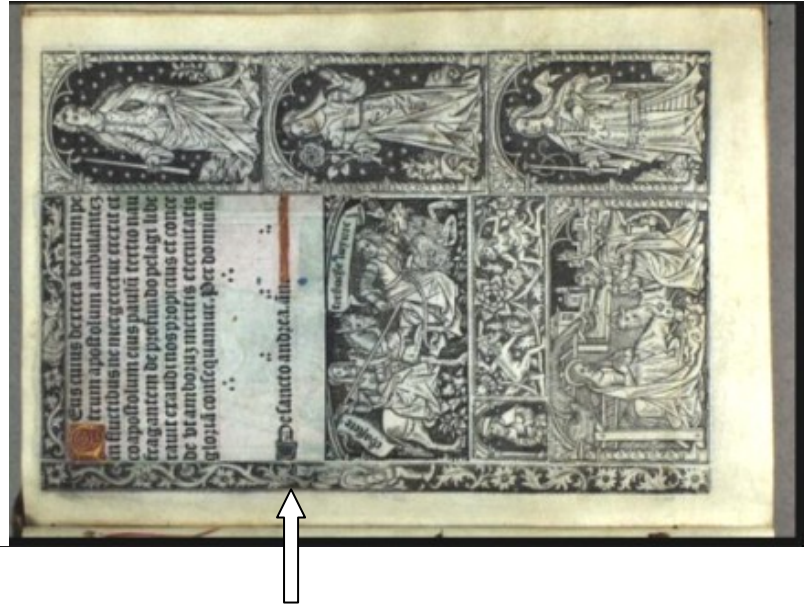 DEus cuius dextera beatum pe
trum apostolum ambulantez
in fluctibus ne mergeretur erexit et
coapostolum eius paulū tertio nau
fragantem de profundo pelagi libe
rauit exaudi nos propicius et conce
de vt amboruz meritis eternitatis
gloriā consequamur. Per dominū.
De sancto andrea. añ
chastete
luxure